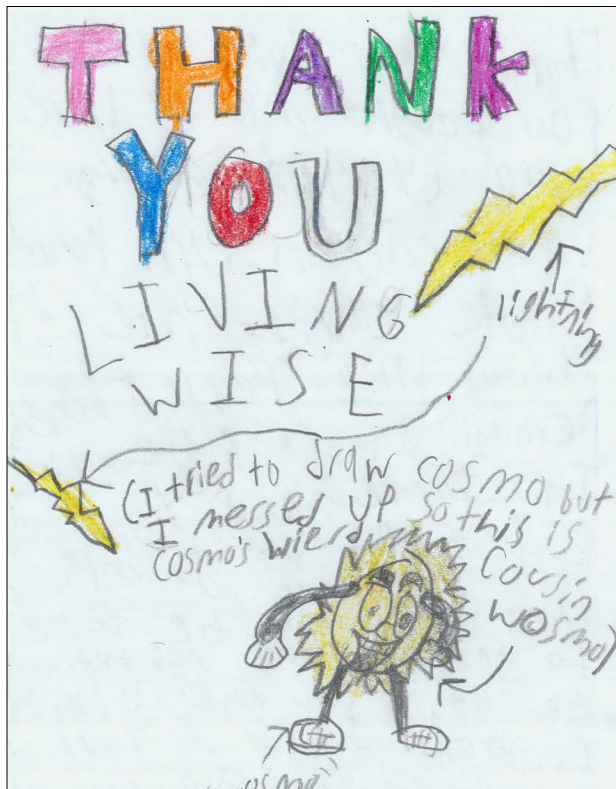 THANK
YOU
LIVING
WISE
lightning
(I tried to draw cosmo but
I messed up so this is
cosmo's wierd
cousin
wosmo)